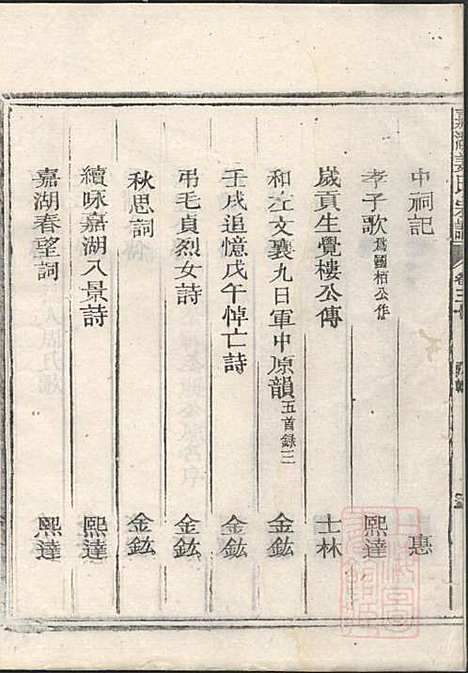 中祠記 惠
孝子歌 為國栢公作 熙達
歲貢生覺樓公傳 士林
和左文襄九日軍中原韻 五首錄三 金鈜
壬戌追憶戊午悼亡詩 金鈜
弔毛貞烈女詩 金鈜
秋思詞 金鈜
續咏嘉湖八景詩 熙達
嘉湖春望詞 熙達